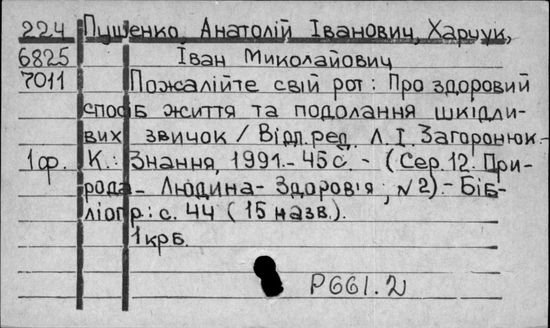 224 Пушенко, Анатолій Іванович, Харчук,
6825 Іван Миколайович
7011 Пожалійте свій рот: Про здоровий
спосіб життя та подолання шкідли-
вих звичок / Відп. ред. Л. І. Загоронюк.
1 ф. К.: Знання, 1991.- 45 с. - (Сер. 12. При-
рода - Людина - Здоров'я; №2).- Біб-
ліогр: с. 44 (15 назв.).
1 крб.
Р661.2